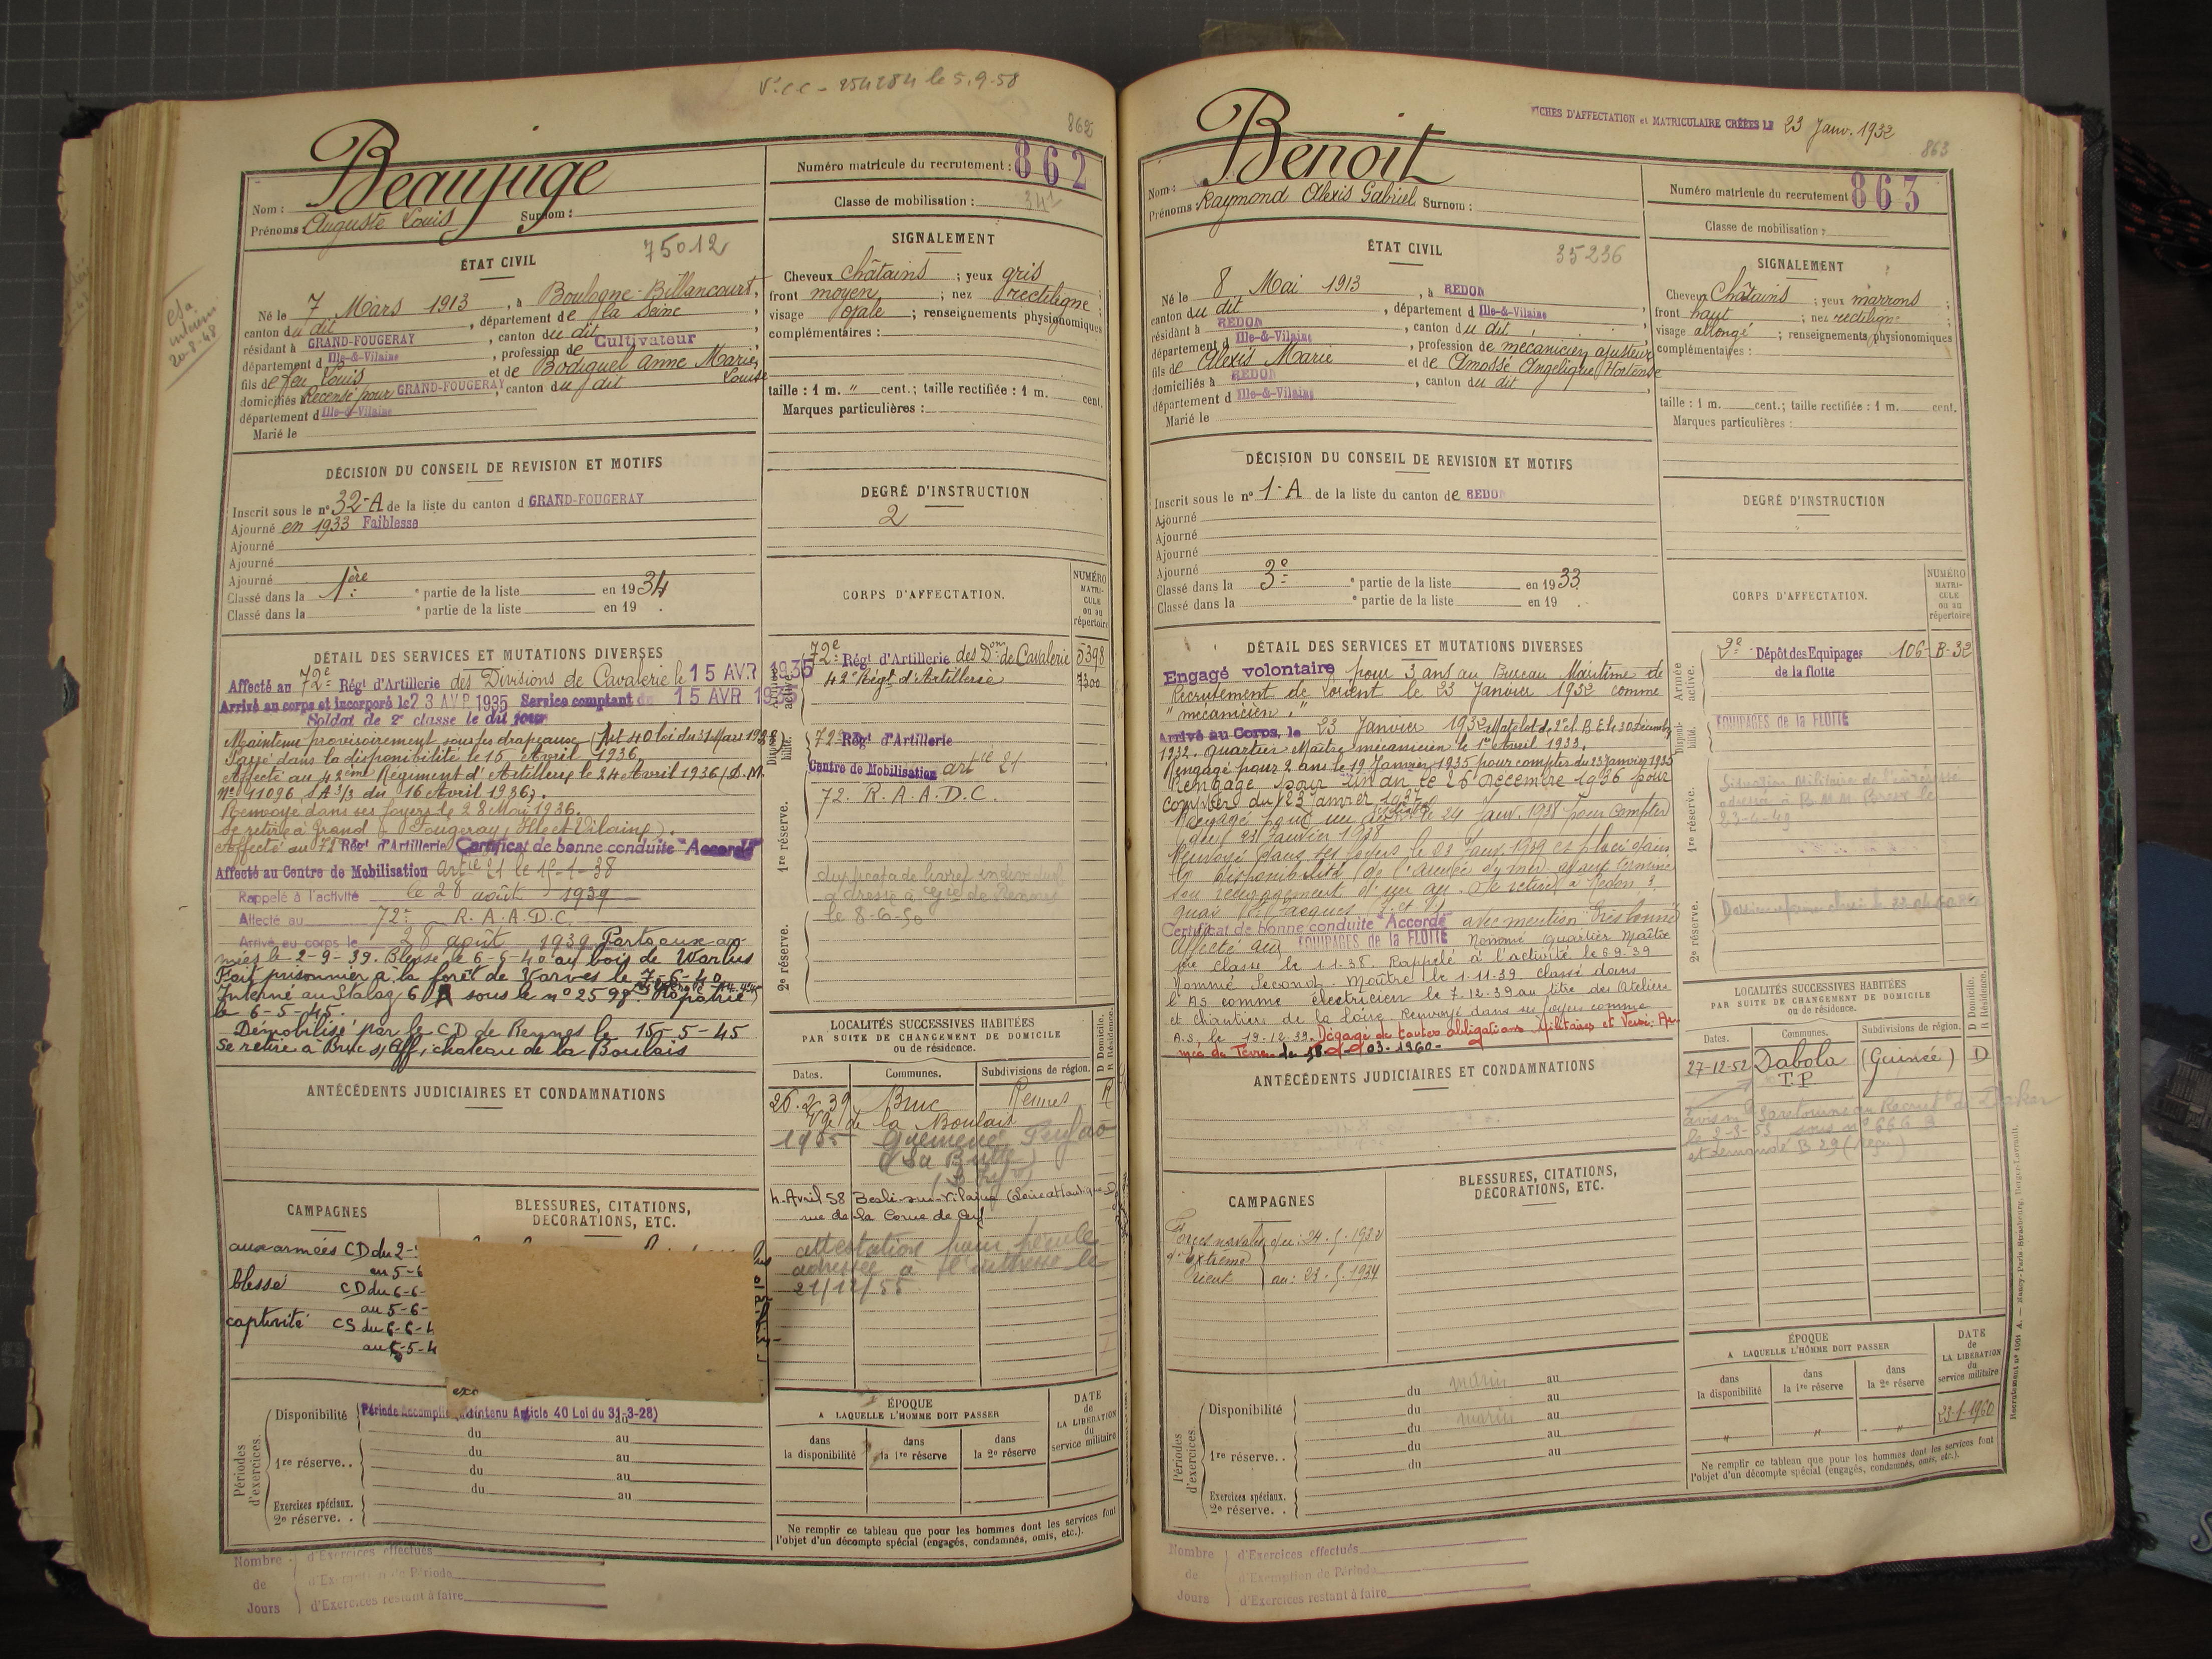 862
Beaujuge
Nom :
Prénoms : Auguste Louis Surnom :
Numéro matricule du recrutement : 862
Classe de mobilisation :
ÉTAT CIVIL
75012
Né le 7 Mars 1913, à Boulogne-Billancourt,
canton du dit, département de la Seine,
résidant à GRAND-FOUGERAY, canton du dit,
département d Ille-&-Vilaine, profession de Cultivateur
fils de feu Louis et de Bodiguel Anne Marie,
Louise
domiciliés à Recensé pour GRAND-FOUGERAY, canton du dit
département d Ille-&-Vilaine
Marié le
SIGNALEMENT
Cheveux châtains ; yeux gris
front moyen ; nez rectiligne ;
visage ovale ; renseignements physionomiques
complémentaires :
taille : 1 m. " cent. ; taille rectifiée : 1 m. cent.
Marques particulières :
DÉCISION DU CONSEIL DE REVISION ET MOTIFS
Inscrit sous le n° 32-A de la liste du canton d GRAND-FOUGERAY
Ajourné en 1933 Faiblesse
Ajourné
Ajourné
Ajourné
Classé dans la 1ère e partie de la liste en 1934
Classé dans la e partie de la liste en 19 .
DEGRÉ D'INSTRUCTION
2
CORPS D'AFFECTATION.
NUMÉRO
MATRI-
CULE
ou au
répertoire
72e Régt d'Artillerie des Dons de Cavalerie 5398
42e Régt d'Artillerie 7300
72e Régt d'Artillerie
Centre de Mobilisation artie 21
72. R. A. A. D. C.
duplicata de livret individuel
le 8-6-50
1re réserve.
2e réserve.
DÉTAIL DES SERVICES ET MUTATIONS DIVERSES
Affecté au 72e Régt d'Artillerie des Divisions de Cavalerie le 15 AVR 1935
Arrivé au corps et incorporé le 23 AVR 1935 Service comptant du 15 AVR 1935
Soldat de 2e classe le dit jour
Maintenu provisoirement sous les drapeaux (Art 40 loi du 31 Mars 1928)
Passé dans la disponibilité le 15 Avril 1936
Affecté au 42ème Régiment d'Artillerie le 24 Avril 1936 (D.M.
No 11096 SA 3/3 du 16 Avril 1936).
Renvoyé dans ses foyers le 28 Mai 1936.
Se retire à Grand Fougeray (Ille et Vilaine).
Affecté au 72 Régt d'Artillerie Certificat de bonne conduite "Accordé"
Affecté au Centre de Mobilisation artie 21 le 15-1-38
Rappelé à l'activité le 28 août 1939
Affecté au 72e R. A. A. D. C.
Arrivé au corps le 28 août 1939 Parti aux ar-
mées le 2-9-39. Blessé le 6-6-40 au bois de Warlus
Fait prisonnier à la forêt de Varves le 7-6-40
Interné au Stalag 6 A sous le n° 2598 Rapatrié
le 6-5-45.
Démobilisé par le CD de Rennes le 15-5-45
se retire à Bruc s/Aff, chateau de la Boulais
ANTÉCÉDENTS JUDICIAIRES ET CONDAMNATIONS
LOCALITÉS SUCCESSIVES HABITÉES
PAR SUITE DE CHANGEMENT DE DOMICILE
ou de résidence.
D Domicile.
R Résidence.
Dates. Communes. Subdivisions de région.
26.2.39 Bruc Rennes R
Vge de la Boulais
1955 Guémené Penfao
(La Butte)
4 Avril 58 Beslé-sur-Vilaine (Loire atlantique D
rue de la Corne de Cerf
attestation pour pécule
adressée à l'intéressé le
21/12/55
CAMPAGNES
BLESSURES, CITATIONS,
DÉCORATIONS, ETC.
aux armées CD du 2-
au 5-6
blessé CD du 6-6-
au 5-6-
captivité CS du 6-6-4
au 5-5-4
Périodes
d'exercices.
Disponibilité Période Accomplie (Maintenu Article 40 Loi du 31-3-28)
du au
1re réserve. . du au
du au
du au
Exercices spéciaux.
2e réserve. .
ÉPOQUE
A LAQUELLE L'HOMME DOIT PASSER
dans la disponibilité
dans la 1re réserve
dans la 2e réserve
DATE
de
LA LIBÉRATION
du
service militaire
Ne remplir ce tableau que pour les hommes dont les services font
l'objet d'un décompte spécial (engagés, condamnés, omis, etc.).
Nombre d'Exercices effectués
de d'Exemption de Période
Jours d'Exercices restant à faire
FICHES D'AFFECTATION et MATRICULAIRE CRÉÉES LE 23 Janv. 1932
863
Benoit
Nom :
Prénoms : Raymond Alexis Gabriel Surnom :
Numéro matricule du recrutement 863
Classe de mobilisation :
ÉTAT CIVIL
35236
Né le 8 Mai 1913, à REDON
canton du dit, département d Ille-&-Vilaine
résidant à REDON, canton du dit,
département d Ille-&-Vilaine, profession de mécanicien ajusteur
fils de Alexis Marie et de Amossé Angélique Hortense
domiciliés à REDON, canton du dit,
département d Ille-&-Vilaine
Marié le
SIGNALEMENT
Cheveux Châtains ; yeux marrons ;
front haut ; nez rectiligne ;
visage allongé ; renseignements physionomiques
complémentaires :
taille : 1 m. cent. ; taille rectifiée : 1 m. cent.
Marques particulières :
DÉCISION DU CONSEIL DE REVISION ET MOTIFS
Inscrit sous le n° 1-A de la liste du canton de REDON
Ajourné
Ajourné
Ajourné
Ajourné
Classé dans la 3e e partie de la liste en 1933
Classé dans la e partie de la liste en 19 .
DEGRÉ D'INSTRUCTION
CORPS D'AFFECTATION.
NUMÉRO
MATRI-
CULE
ou au
répertoire
Armée
active.
2e Dépôt des Equipages 106-B-32
de la flotte
EQUIPAGES de la FLOTTE
Situation Militaire de l'intéressé
1re réserve.
2e réserve.
DÉTAIL DES SERVICES ET MUTATIONS DIVERSES
Engagé volontaire pour 3 ans au Bureau Maritime de
Recrutement de Lorient le 23 Janvier 1932 comme
"mécanicien".
Arrivé au Corps, le 23 Janvier 1932 Matelot de 2e cl. B.E. le 30 Décembre
1932. Quartier Maître mécanicien le 1er Avril 1933.
Rengagé pour 2 ans le 19 Janvier 1935 pour compter du 23 Janvier 1935
Rengagé pour un an le 26 Décembre 1936 pour
compter du 23 Janvier 1937
Rengagé pour un an le 24 Janv. 1938 pour compter
du 23 Janvier 1938
Renvoyé dans ses foyers le 23 Janv. 1939 et placé dans
la disponibilité de l'armée de mer ayant terminé
son rengagement d'un an. Se retire à Redon 3,
quai St Jacques
Certificat de bonne conduite "Accordé" avec mention Très bonne
Affecté aux EQUIPAGES de la FLOTTE Nommé quartier Maître
1re Classe le 1-1-38. Rappelé à l'activité le 6 9-39
Nommé Second-Maître le 1-11-39 classé dans
l'AS comme électricien le 7-12-39 au titre des Ateliers
et Chantiers de la Loire. Renvoyé dans ses foyers comme
A.S. le 19-12-39. Dégagé de toutes obligations Militaires
03-1960-
ANTÉCÉDENTS JUDICIAIRES ET CONDAMNATIONS
LOCALITÉS SUCCESSIVES HABITÉES
PAR SUITE DE CHANGEMENT DE DOMICILE
ou de résidence.
D Domicile.
R Résidence.
Dates. Communes. Subdivisions de région.
27-12-52 Dabola (Guinée) D
T.P.
CAMPAGNES
BLESSURES, CITATIONS,
DÉCORATIONS, ETC.
Forces navales du : 24.5.1932
d'extrême
Orient au : 23.5.1934
Périodes
d'exercices.
Disponibilité du marin au
du marin au
1re réserve. . du au
du au
Exercices spéciaux.
2e réserve. .
ÉPOQUE
A LAQUELLE L'HOMME DOIT PASSER
dans la disponibilité
dans la 1re réserve
dans la 2e réserve
DATE
de
LA LIBÉRATION
du
service militaire
" " " 23-1-1960
Ne remplir ce tableau que pour les hommes dont les services font
l'objet d'un décompte spécial (engagés, condamnés, omis, etc.).
Nombre d'Exercices effectués
de d'Exemption de Période
Jours d'Exercices restant à faire